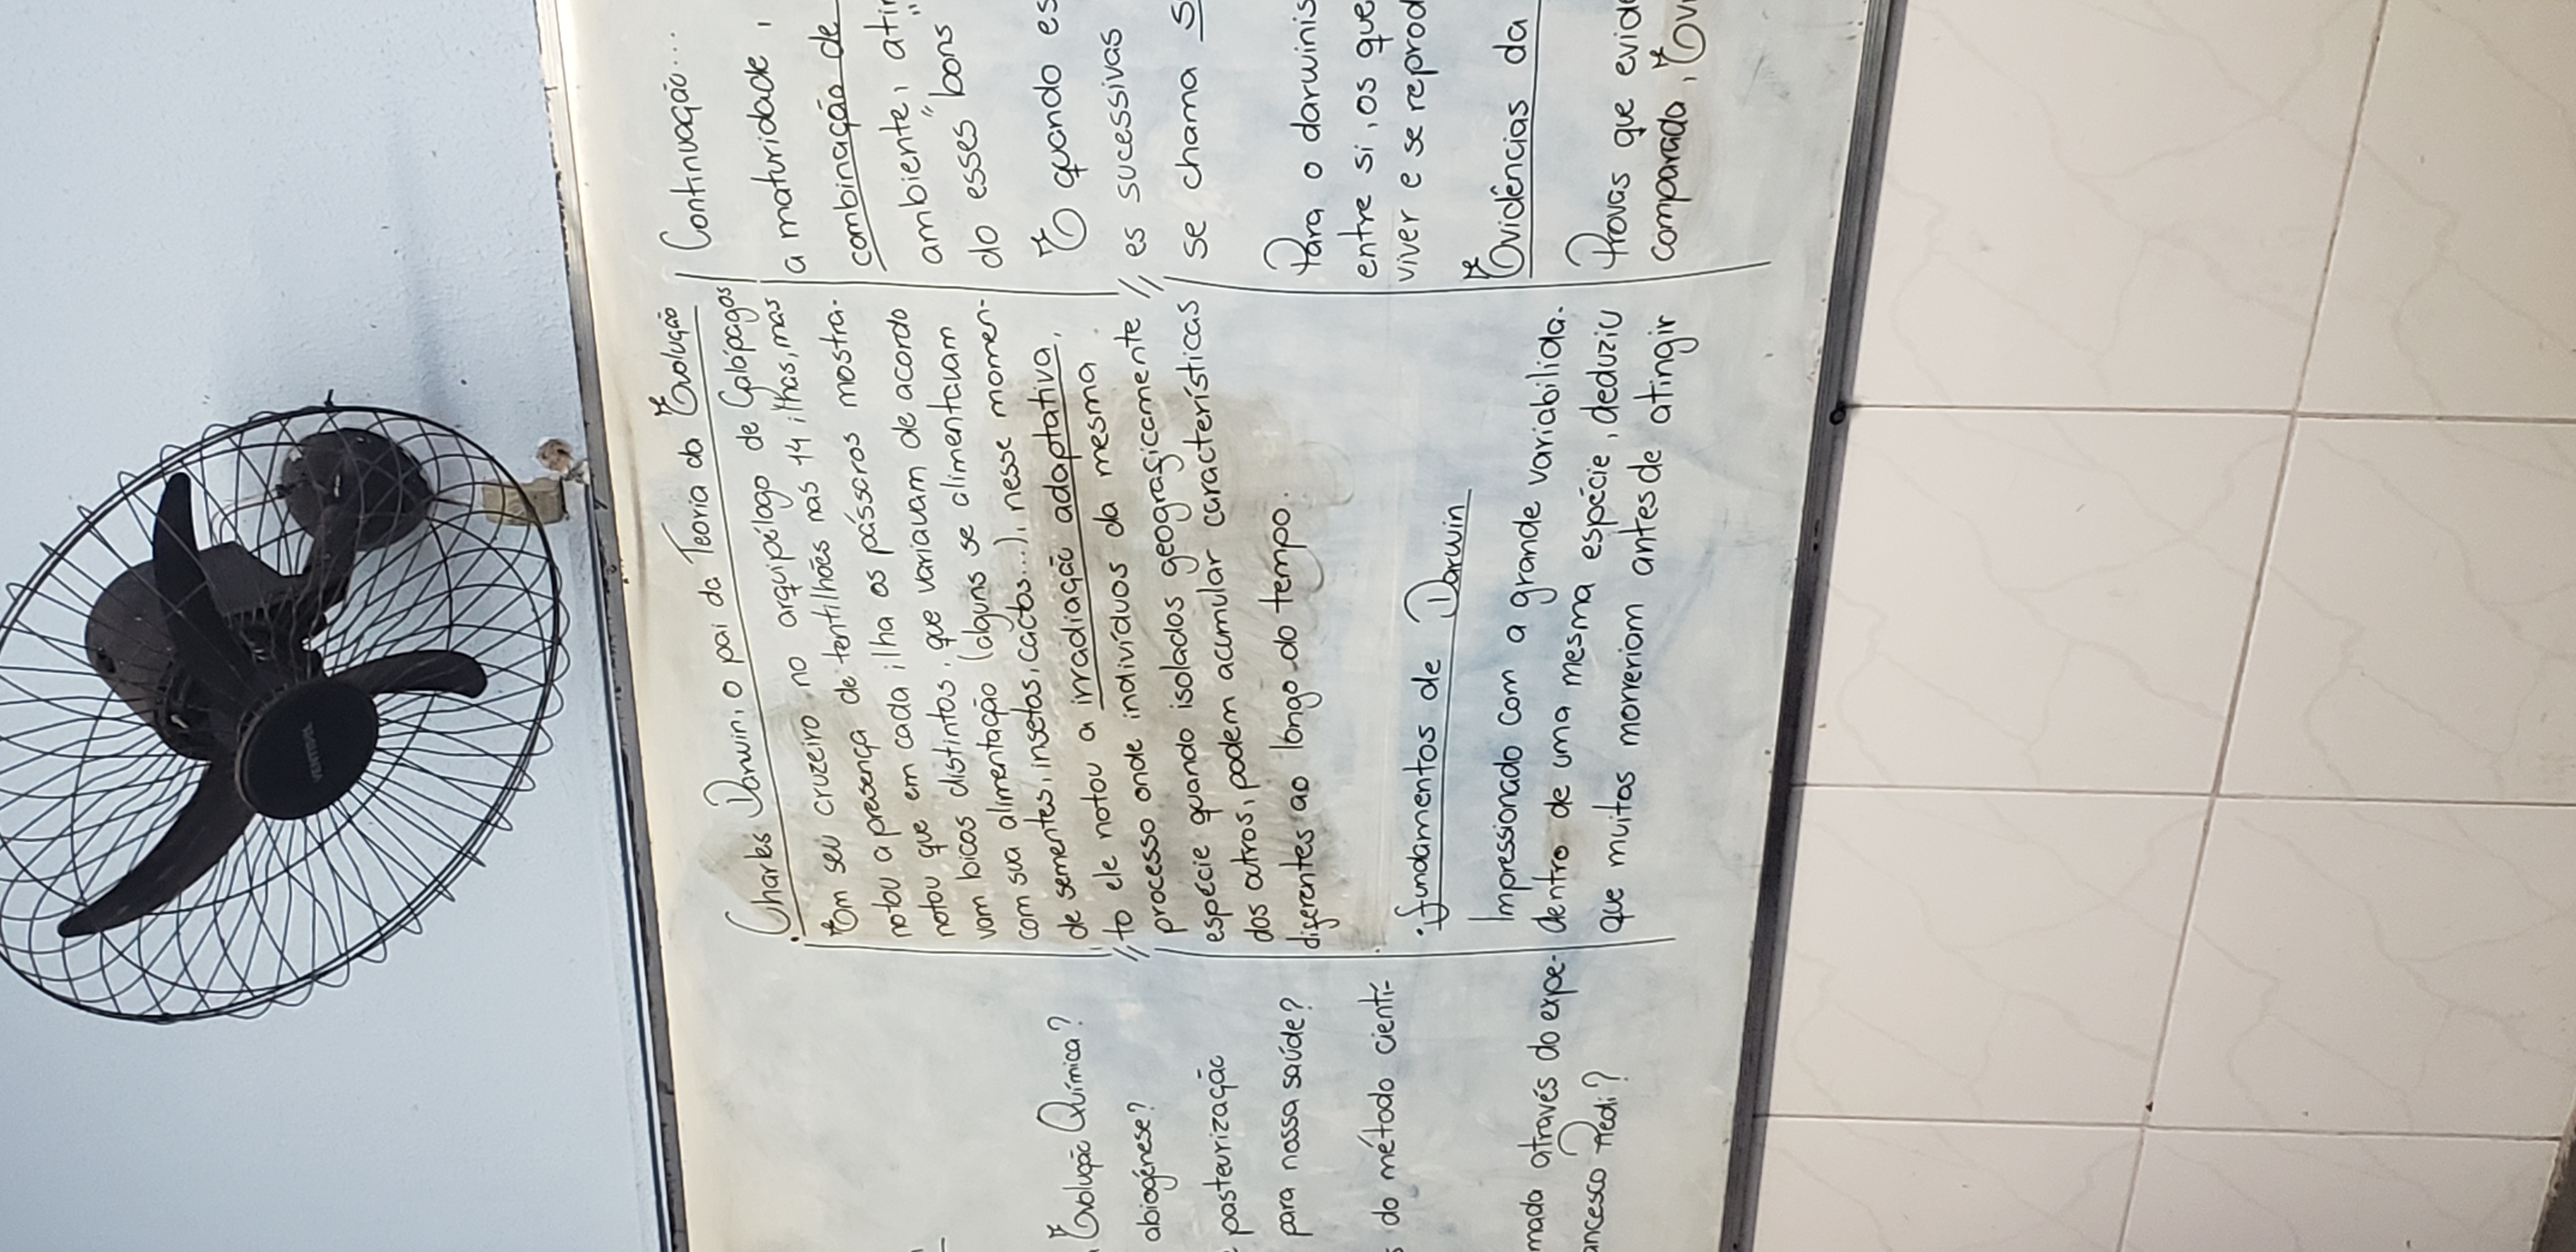 VENTISOL
Evolução Química?
abiogênese?
pasteurização
para nossa saúde?
do método cientí-
mada através do expe-
ancesco Redi?
. Charles Darwin, o pai da Teoria da Evolução
Em seu cruzeiro no arquipélogo de Galápagos
notou a presença de tentilhões nas 14 ilhas, mas
notou que em cada ilha os pássaros mostra-
vam bicos distintos, que variavam de acordo
com sua alimentação (alguns se alimentavam
de sementes, insetos, cactos...), nesse momen-
to ele notou a irradiação adaptativa,
processo onde indivíduos da mesma
espécie quando isolados geograficamente
dos outros, podem acumular características
diferentes ao longo do tempo.
. fundamentos de Darwin
Impressionado com a grande variabilida-
dentro de uma mesma espécie, deduziu
que muitos morreriam antes de atingir
Continuação...
a maturidade,
combinação de
ambiente, atin
do esses "bons"
E quando es
es sucessivas
se chama s
Para o darwinis
entre si, os que
viver e se reprod
Evidências da
Provas que evide
comparada, Evi